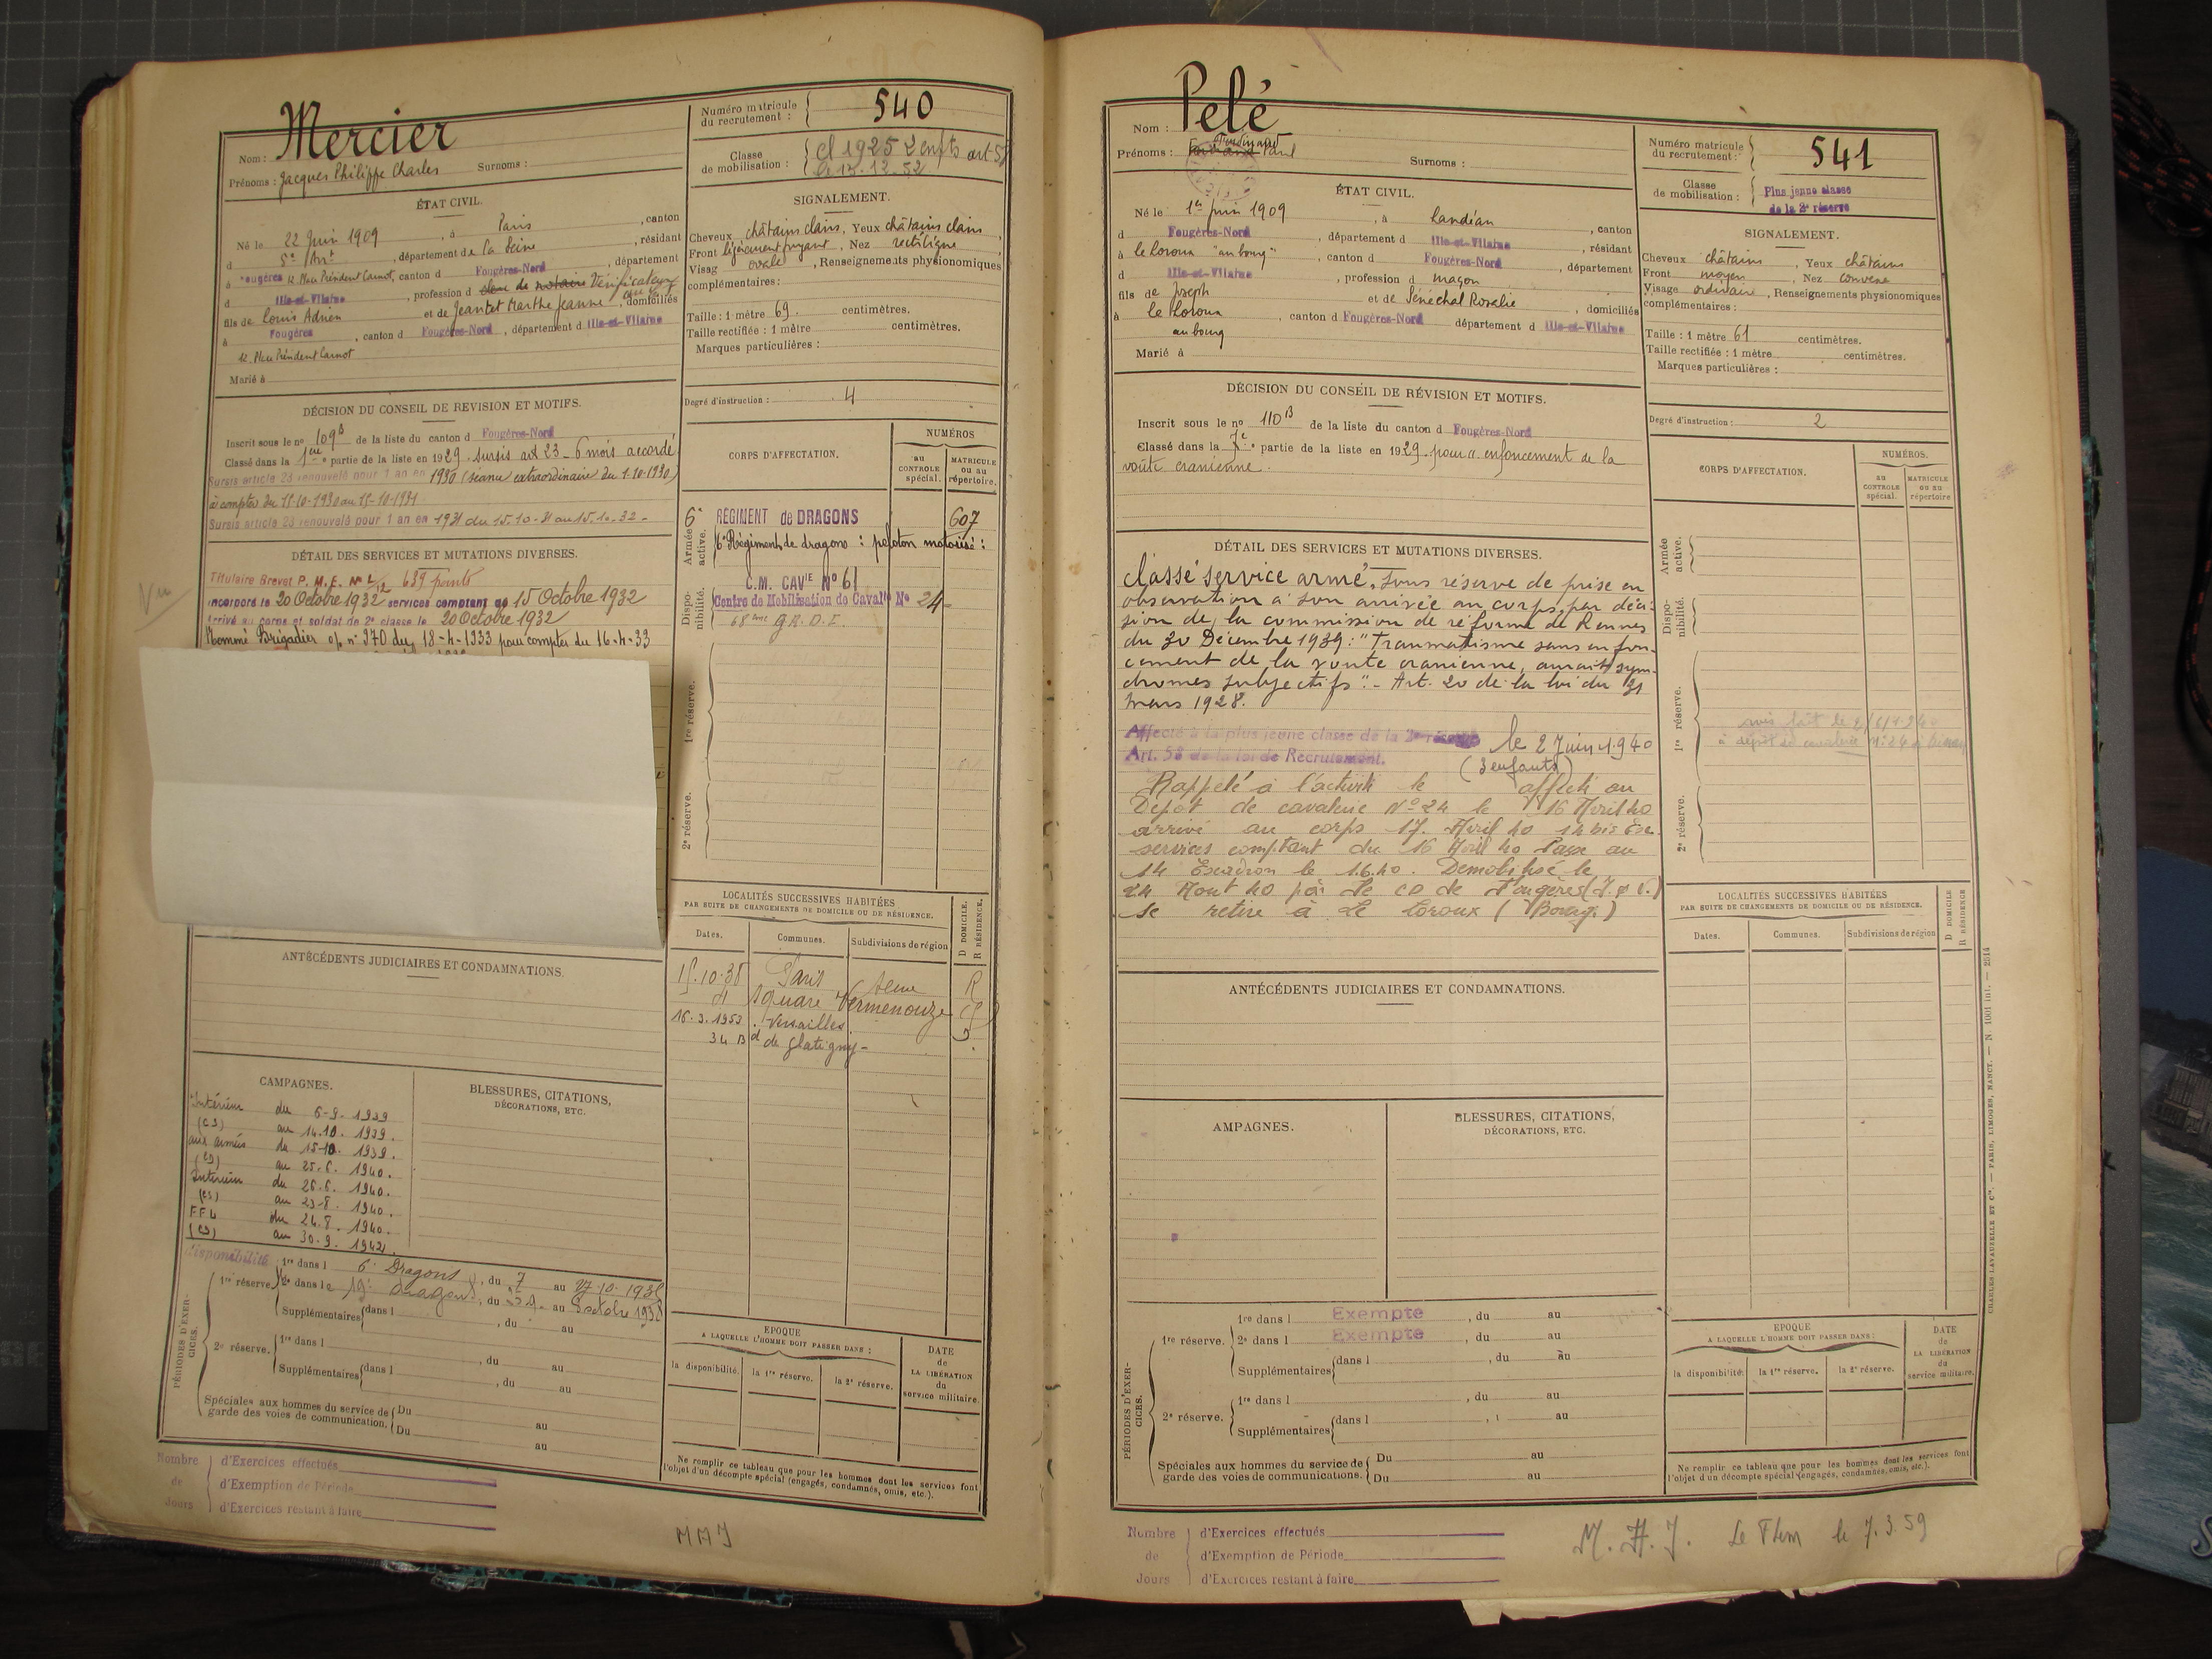 Nom : Mercier
Prénoms : Jacques Philippe Charles Surnoms :
Numéro matricule du recrutement : 540
Classe de mobilisation : cl 1925 2 enfts art 58
le 12.12.52
ÉTAT CIVIL.
Né le 22 Juin 1909, à Paris, canton
d 5e Arrt, département de La Seine, résidant
à Fougères 12 Place Président Carnot, canton d Fougères-Nord, département
d Ille-et-Vilaine, profession d clerc de notaire Vérificateur
fils de Louis Adrien et de Jeantet Marthe Jeanne, domiciliés
à Fougères, canton d Fougères-Nord, département d Ille-et-Vilaine
12. Place Président Carnot
Marié à
SIGNALEMENT.
Cheveux châtains clairs, Yeux châtains clairs,
Front légèrement fuyant, Nez rectiligne
Visag ovale, Renseignements physionomiques
complémentaires :
Taille : 1 mètre 69. centimètres.
Taille rectifiée : 1 mètre centimètres.
Marques particulières :
Degré d'instruction : 4
DÉCISION DU CONSEIL DE REVISION ET MOTIFS.
Inscrit sous le no 109B de la liste du canton d Fougères-Nord
Classé dans la 1ère partie de la liste en 1929. sursis art 23 - 6 mois accordé
Sursis article 23 renouvelé pour 1 an en 1930 (séance extraordinaire du 1-10-1930)
à compter du 15-10-1930 au 15-10-1931
Sursis article 23 renouvelé pour 1 an en 1931 du 15.10-31 au 15.10-32 -
DÉTAIL DES SERVICES ET MUTATIONS DIVERSES.
Titulaire Brevet P. M. E. No 639 points
Vu
Incorporé le 20 Octobre 1932 services comptant du 15 Octobre 1932
Arrivé au corps et soldat de 2e classe le 20 Octobre 1932
Nommé Brigadier o/ n° 970 du 18-4-1933 pour compter du 16-4-33
CORPS D'AFFECTATION.
NUMÉROS
AU CONTROLE spécial.
MATRICULE OU AU répertoire.
Armée active.
6e RÉGIMENT de DRAGONS 607
6e Régiment de dragons : peloton motorisé :
Disponibilité.
C.M. CAVIE No 61
Centre de Mobilisation de Cavalie No 24
68ème G.R.D.I.
1re réserve.
2e réserve.
LOCALITÉS SUCCESSIVES HABITÉES
PAR SUITE DE CHANGEMENTS DE DOMICILE OU DE RÉSIDENCE.
Dates. Communes. Subdivisions de région D DOMICILE. R RÉSIDENCE.
15.10.38 Paris Seine R
4 square Vermenouze
16.3.1953 Versailles.
34 Bd de Glatigny -
ANTÉCÉDENTS JUDICIAIRES ET CONDAMNATIONS.
CAMPAGNES.
BLESSURES, CITATIONS,
DÉCORATIONS, ETC.
Intérieur du 6-9. 1939
(CS) au 14.10. 1939.
aux armées du 15-10. 1939.
au 25.6. 1940.
Intérieur du 26.6. 1940.
(CS) au 23-8. 1940.
du 24.8. 1940.
au 30.9. 1942.
disponibilité
PÉRIODES D'EXERCICES.
1re réserve.
1re dans l 6e Dragons, du 7 au 27-10-1936
2e dans le 19e dragons, du au Octobre 1938
Supplémentaires dans l , du au
2e réserve. 1re dans l , du au
Supplémentaires dans l , du au
Spéciales aux hommes du service de garde des voies de communication. Du au
Du au
EPOQUE
A LAQUELLE L'HOMME DOIT PASSER DANS :
la disponibilité. la 1re réserve. la 2e réserve.
DATE de LA LIBÉRATION du service militaire.
Ne remplir ce tableau que pour les hommes dont les services font
l'objet d'un décompte spécial (engagés, condamnés, omis, etc.).
Nombre de Jours
d'Exercices effectués
d'Exemption de Période
d'Exercices restant à faire
MMJ
Nom : Pelé
Prénoms : Ferdinand Paul Surnoms :
Numéro matricule du recrutement : 541
Classe de mobilisation : Plus jeune classe
de la 2e réserve
ÉTAT CIVIL.
Né le 1er Juin 1909, à Landéan, canton
d Fougères-Nord, département d Ille-et-Vilaine, résidant
à le Loroux "au bourg", canton d Fougères-Nord, département
d Ille-et-Vilaine, profession d maçon
fils de Joseph et de Sénéchal Rosalie, domiciliés
à le Loroux, canton d Fougères-Nord département d Ille-et-Vilaine
au bourg
Marié à
SIGNALEMENT.
Cheveux châtains, Yeux châtains
Front moyen, Nez convexe
Visage ordinaire, Renseignements physionomiques
complémentaires :
Taille : 1 mètre 61 centimètres.
Taille rectifiée : 1 mètre centimètres.
Marques particulières :
Degré d'instruction : 2
DÉCISION DU CONSEIL DE RÉVISION ET MOTIFS.
Inscrit sous le no 110B de la liste du canton d Fougères-Nord
Classé dans la 7e partie de la liste en 1929 pour "enfoncement de la
voûte cranienne.
DÉTAIL DES SERVICES ET MUTATIONS DIVERSES.
Classé service armé. Sous réserve de prise en
observation à son arrivée au corps, par déci-
sion de la commission de réforme de Rennes
du 20 Décembre 1939 : "Traumatisme sans enfon-
cement de la voute cranienne, aurait syn-
dromes subjectifs" - Art. 20 de la loi du 31
Mars 1928.
Affecté à la plus jeune classe de la 2e réserve le 2 Juin 1940
Art. 58 de la loi de Recrutement. (3 enfants)
Rappelé à l'activité le affecté au
Dépot de cavalerie N° 24 le 16 Avril 40
arrivé au corps 17. Avril 40 14 bis Esc.
services comptant du 16 Avril 40 Passe au
14 Escadron le 1.6.40. Demobilisé le
24 Aout 40 par le CD de Fougères (I. & V.)
se retire à Le Loroux (Bourg)
CORPS D'AFFECTATION.
NUMÉROS.
AU CONTROLE spécial.
MATRICULE OU AU répertoire
Armée active.
Disponibilité.
1re réserve.
2e réserve.
LOCALITÉS SUCCESSIVES HABITÉES
PAR SUITE DE CHANGEMENTS DE DOMICILE OU DE RÉSIDENCE.
Dates. Communes. Subdivisions de région D DOMICILE R RÉSIDENCE
ANTÉCÉDENTS JUDICIAIRES ET CONDAMNATIONS.
AMPAGNES.
BLESSURES, CITATIONS,
DÉCORATIONS, ETC.
PÉRIODES D'EXERCICES.
1re réserve. 1re dans l Exempte, du au
2e dans l Exempte, du au
Supplémentaires dans l , du au
2e réserve. 1re dans l , du au
Supplémentaires dans l , au
Spéciales aux hommes du service de garde des voies de communication. Du au
Du au
EPOQUE
A LAQUELLE L'HOMME DOIT PASSER DANS :
la disponibilité. la 1re réserve. la 2e réserve.
DATE de LA LIBÉRATION du service militaire.
Ne remplir ce tableau que pour les hommes dont les services font
l'objet d'un décompte spécial (engagés, condamnés, omis, etc.).
CHARLES-LAVAUZELLE ET Cie. — PARIS, LIMOGES, NANCY. — N 1001 int. — 2514
Nombre de Jours
d'Exercices effectués
d'Exemption de Période
d'Exercices restant à faire
le 7.3.59